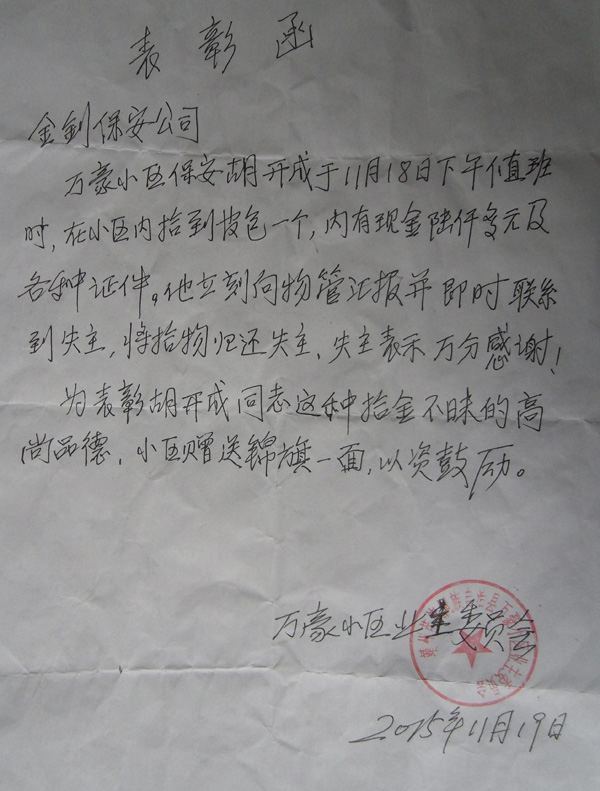 表彰函
金剑保安公司
万豪小区保安胡开成于11月18日下午值班
时,在小区内拾到皮包一个,内有现金陆仟多元及
各种证件。他立刻向物管汇报并即时联系
到失主,将拾物归还失主、失主表示万分感谢!
为表彰胡开成同志这种拾金不昧的高
尚品德,小区赠送锦旗一面,以资鼓励。
万豪小区业主委员会
2015年11月19日